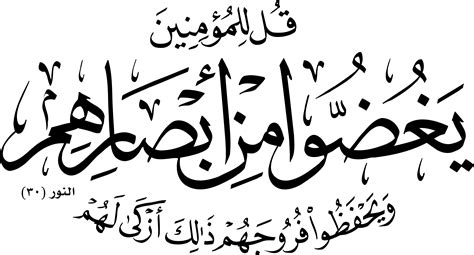 قُل لِّلْمُؤْمِنِينَ
يَغُضُّوا مِنْ أَبْصَارِهِمْ
النور (٣٠)
وَيَحْفَظُوا فُرُوجَهُمْ ذَٰلِكَ أَزْكَىٰ لَهُمْ